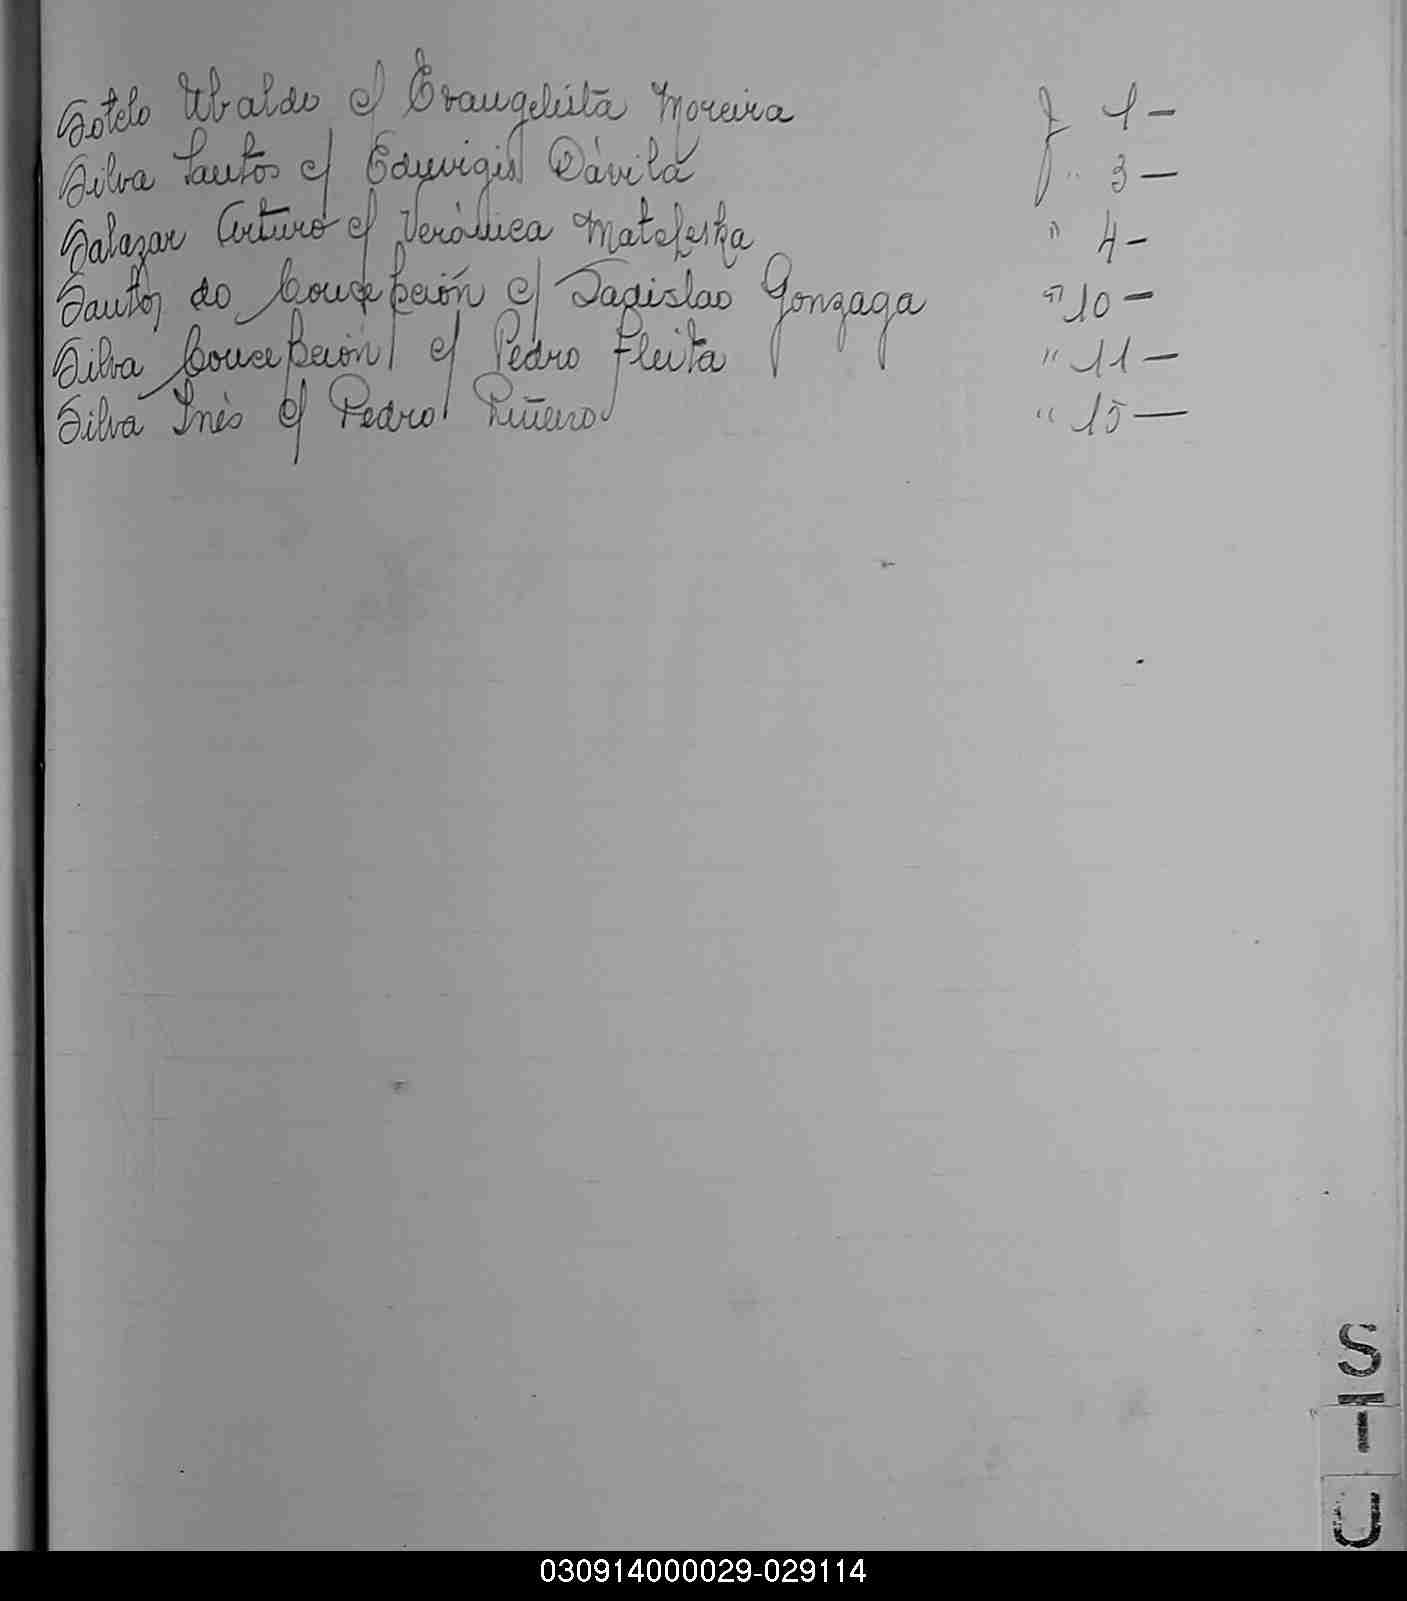 Sotelo Ubaldo c/ Evangelista Moreira f 1 —
Silva Santos c/ Eduvigis Dávila f " 3 —
Salazar Arturo c/ Verónica " 4 —
Santos do Concepción c/ Ladislao Gonzaga " 10 —
Silva Concepción c/ Pedro Fleita " 11 —
Silva Inés c/ Pedro Piñeiro " 15 —
S
T
U
030914000029-029114